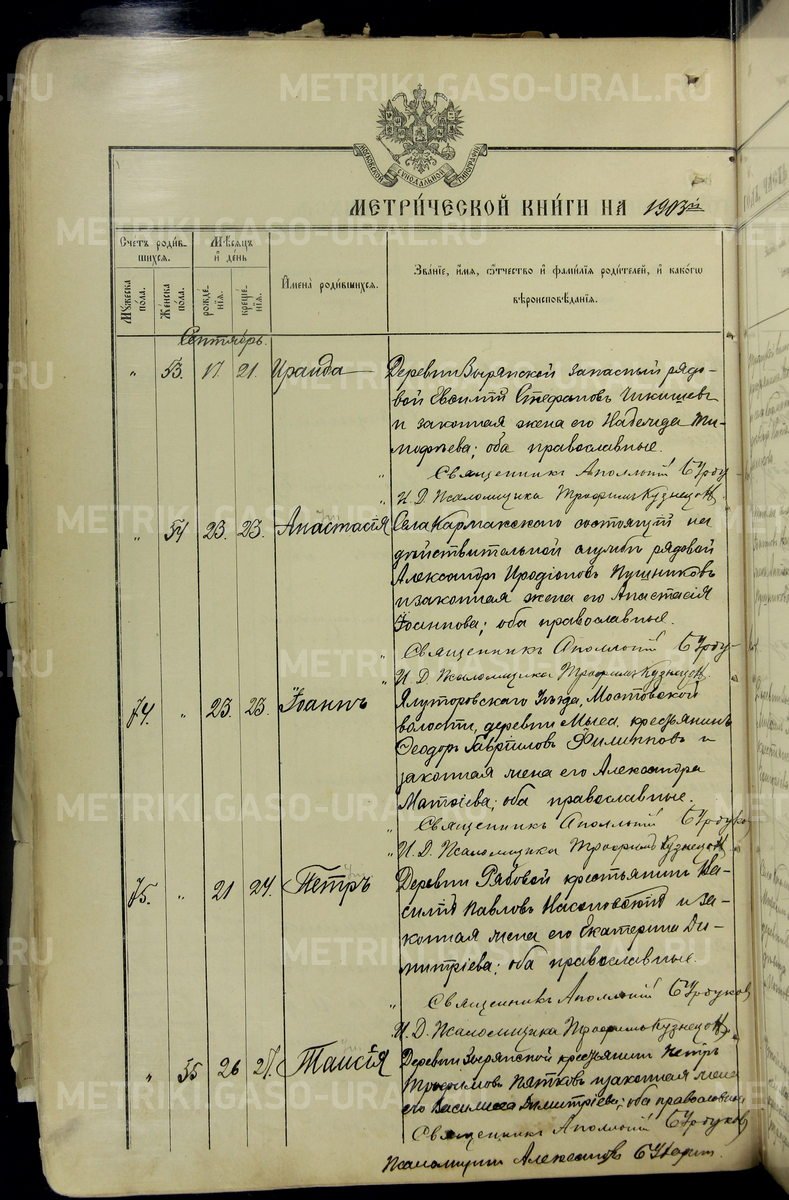 METRIKI.GASO-URAL.RU
МОСКОВСКОЙ СѴНОДАЛЬНОЙ ТИПОГРАФІИ
МЕТРИ́ЧЕСКОЙ КНИ́ГИ НА 1903й
Счетъ родив-
шихся.
Мѣсяцъ
и҆ день
И҆мена̀ роди́вшихся.
Зва́нїе, и҆́мѧ, ѻ҆́тчество и҆ фами́лїѧ роди́телей, и҆ како́гѡ
вѣроисповѣ́данїѧ.
Мꙋжеска
пола.
Женска
пола.
рожде-
нїѧ.
креще-
нїѧ.
Сентябрь.
" 53. 17. 21. Ираида
Деревни Зырянской запасный рядо-
вой Евсипій Стефановъ Чикишевъ
и законная жена его Надежда Ти-
мофѣева; оба православные.
Священникъ Аполлоній
И. Д. Псаломщика Трофимъ Кузнецов
" 54 23. 23. Анастасія
Села Кармакскаго состоящій на
дѣйствительной службѣ рядовой
Александръ Иродіоновъ Пушниковъ
и законная жена его Анастасія
Іоаннова; оба православные.
Священникъ Аполлоній
И. Д. Псаломщика Трофимъ Кузнецов.
74. " 23. 23. Іоаннъ
Ялуторовскаго уѣзда, Мостовской
волости, деревни Мыса, крестьянинъ
Ѳеодоръ Гавріиловъ Филипповъ и
законная жена его Александра
Матѳіева; оба православные.
Священникъ Аполлоній
И. Д. Псаломщика Трофимъ Кузнецов
75. " 21 24. Петръ
Деревни Рябовой крестьянинъ Ва-
силій Павловъ и за-
конная жена его Екатерина Ди-
митріева; оба православные.
Священникъ Аполлоній
И. Д. Псаломщика Трофимъ Кузнецов
" 55 26 Таисія
Деревни Зырянской крестьянинъ Петръ
Трофимовъ Пятковъ и законная жена
его Василиса Димитріева; оба православные
Священникъ Аполлоній
Псаломщикъ